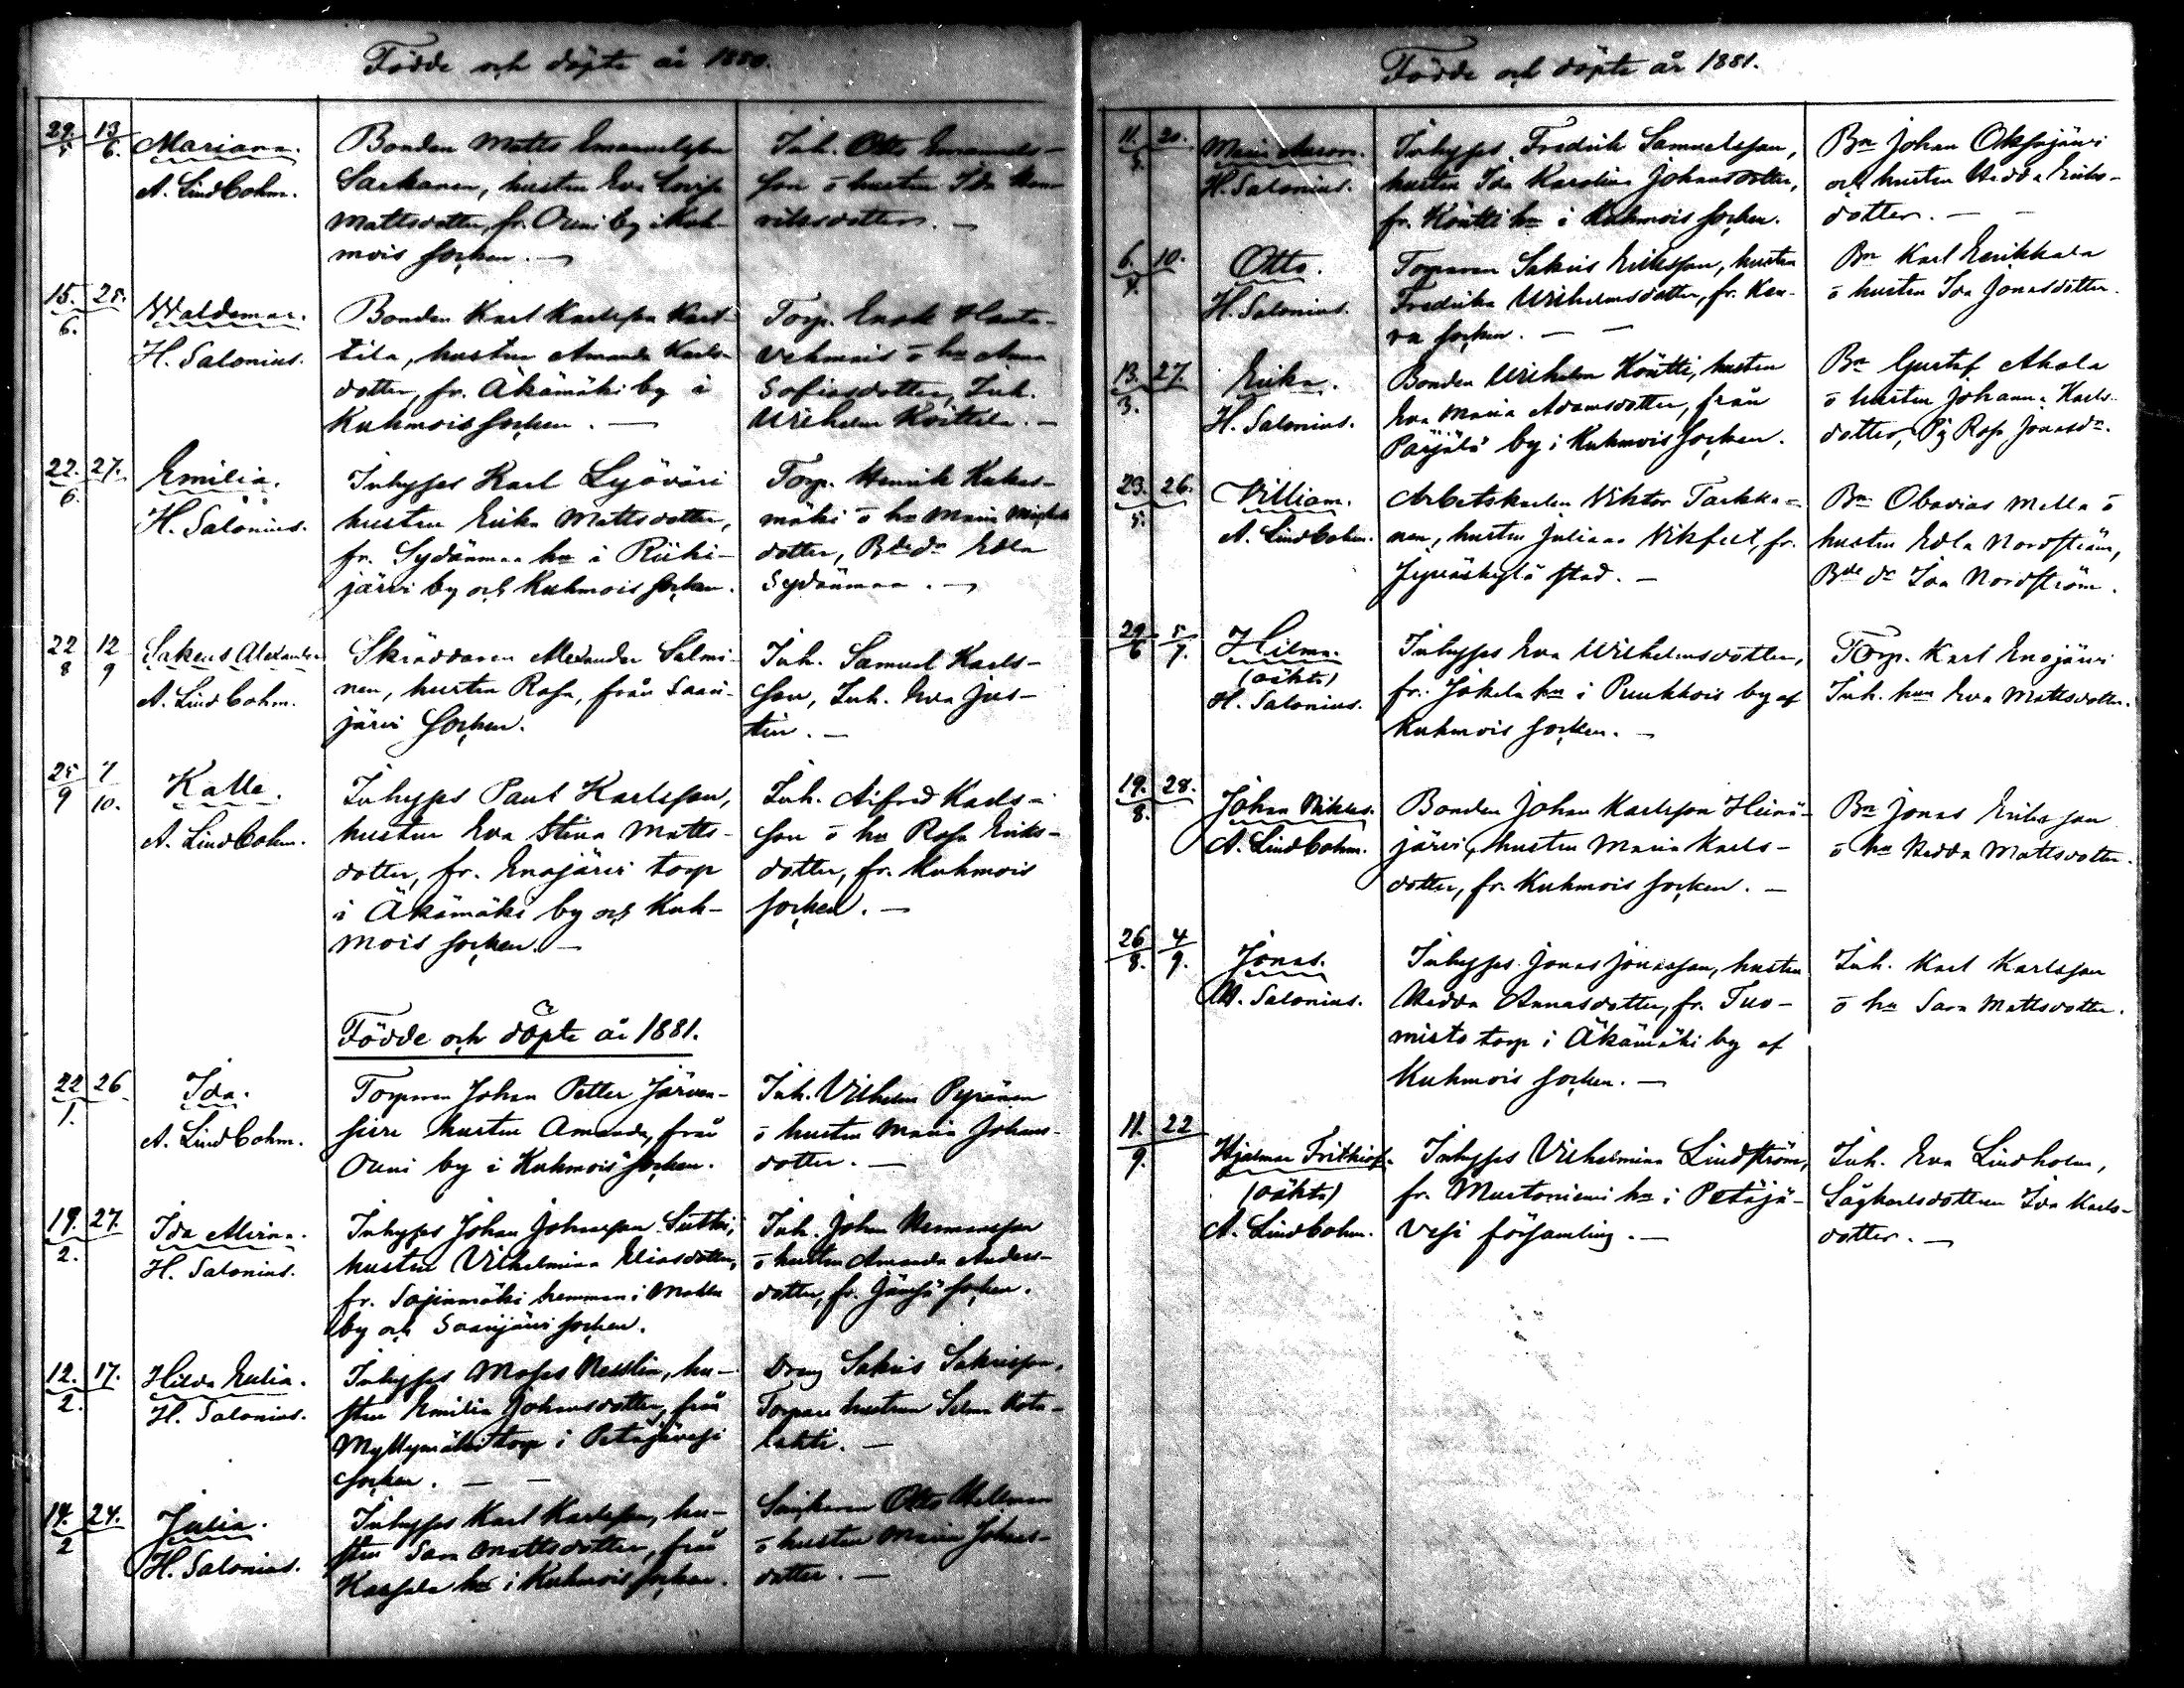 Födde och döpte år 1880.
29/5 13/6. Mariana. A. Lindbohm.
Bonden Matts Emanuelsson
Sarkanen, hustru Eva Lovisa
Mattsdotter, fr. Ouni by i Kuh-
mois socken. —
Inh. Otto Emanuels-
son o hustru Ida Hen-
riksdotter. —
15./6. 25. Waldemar. H. Salonius.
Bonden Karl Karlsson Kart-
tila, hustru Amanda Karls-
dotter, fr. Äkämäki by i
Kuhmois socken. —
Torp. Enok Hauta-
vehmais o hu Anna
Sofiasdotter, Inh.
Wilhelm Koittila. —
22./6. 27. Emilia. H. Salonius.
Inhyses Karl Lyöväri
hustru Erika Mattsdotter,
fr. Sydänmaa hn i Riihi-
järvi by och Kuhmois socken.
Torp. Henrik Kukas-
mäki o hu Maria Michels
dotter, Bdedr Edla
Sydänmaa. —
22/8 12/9 Sakeus Alexander A. Lindbohm.
Skräddaren Alexander Salmi-
nen, hustru Rosa, från Saari-
järvi socken.
Inh. Samuel Karls-
son, Inh. Eva Jus-
tin. —
25/9 7/10. Kalle. A. Lindbohm.
Inhyses Paul Karlsson,
hustru Eva Stina Matts-
dotter, fr. Enojärvi torp
i Äkämäki by och Kuh-
mois socken. —
Inh. Alfred Karls-
son o hu Rosa Eriks-
dotter, fr. Kuhmois
socken. —
Födde och döpte år 1881.
22/1. 26 Ida. A. Lindbohm.
Torparen Johan Petter Järven-
suu hustru Amanda, från
Ouni by i Kuhmois socken.
Inh. Vilhelm Pynönen
o hustru Maria Johans-
dotter. —
19./2. 27. Ida Alvina. H. Salonius.
Inhyses Johan Johansson
hustru Vilhelmina Eliasdotter,
fr. Sojinmäki hemman i Mahlu
by och Saarijärvi socken.
Inh. Johan Hermansson
o hustru Amanda Anders-
dotter, fr. Jämsä socken.
12./2. 17. Hilda Eulia. H. Salonius.
Inhyses Moses, hu-
stru Emilia Johansdotter, från
Myllymäki torp i Petäjävesi
socken. — —
Dräng Sakris Sakrisson,
Torpare hustrun Selma Kota-
lahti. —
14./2 24. Julia. H. Salonius.
Inhyses Karl Karlsson, hu-
stru Sara Mattsdotter, från
Kassala hn i Kuhmois socken.
Otto Hellman
o hustru Maria Johans-
dotter. —
Födde och döpte år 1881.
11./3. 20. Maria Aurora. H. Salonius.
Inhyses Fredrik Samuelsson,
hustru Ida Karolina Johansdotter,
fr. Köntti hn i Kuhmois socken.
Bn Johan Oksajärvi
och hustru Hedda Eriks-
dotter. — —
6./4. 10. Otto. H. Salonius.
Torparen Sakris Eriksson, hustru
Fredrika Wilhelmsdotter, fr. Keu-
ru socken. — —
Bn Karl Eerikkala
o hustru Ida Jonasdotter.
13./3. 27 Erika. H. Salonius.
Bonden Wilhelm Köntti, hustru
Eva Maria Adamsdotter, från
Pärjälä by i Kuhmois socken.
Bn Gustaf Ahola
o hustru Johanna Karls-
dotter, Pig Rosa Jonasdr.
23./5. 26. Villiam. A. Lindbohm.
Arbetskarlen Viktor Tarkka-
nen, hustru Juliana Vikfelt, fr.
Jyväskylä stad. —
Bn Obadias Mella o
hustru Edla Nordström,
Bde dr Ida Nordström.
29/6 5/7. Hilma. (oäkta) H. Salonius.
Inhyses Eva Wilhelmsdotter,
fr. Jokela hn i Puukkois by af
Kuhmois socken. —
Torp. Karl Enojärvi
Inh. hun Eva Mattsdotter.
19./8. 28. Johan Niklas. A. Lindbohm.
Bonden Johan Karlsson Heinä-
järvi, hustru Maria Karls-
dotter, fr. Kuhmois socken. —
Bn Jonas Eriksson
o hu Hedda Mattsdotter.
26/8. 4/9. Jonas. H. Salonius.
Inhyses Jonas Jonasson, hustru
Hedda Annasdotter, fr. Tuo-
misto torp i Äkämäki by af
Kuhmois socken. —
Inh. Karl Karlsson
o hu Sara Mattsdotter.
11./9. 22 Hjalmar Frithiof. (oäkta) A. Lindbohm.
Inhyses Vilhelmina Lindström,
fr. Mustoniemi hn i Petäjä-
vesi församling. —
Inh. Eva Lindholm,
Sågkarlsdottren Ida Karls-
dotter. —